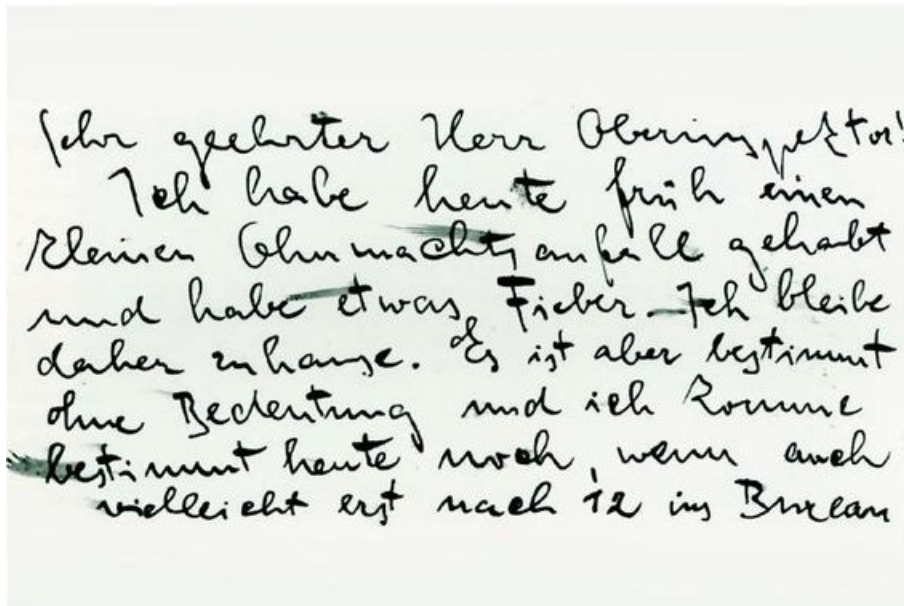 Sehr geehrter Herr Oberinspektor!
Ich habe heute früh einen
kleinen Ohnmachtsanfall gehabt
und habe etwas Fieber. Ich bleibe
daher zuhause. Es ist aber bestimmt
ohne Bedeutung und ich komme
bestimmt heute noch, wenn auch
vielleicht erst nach 12 ins Bureau